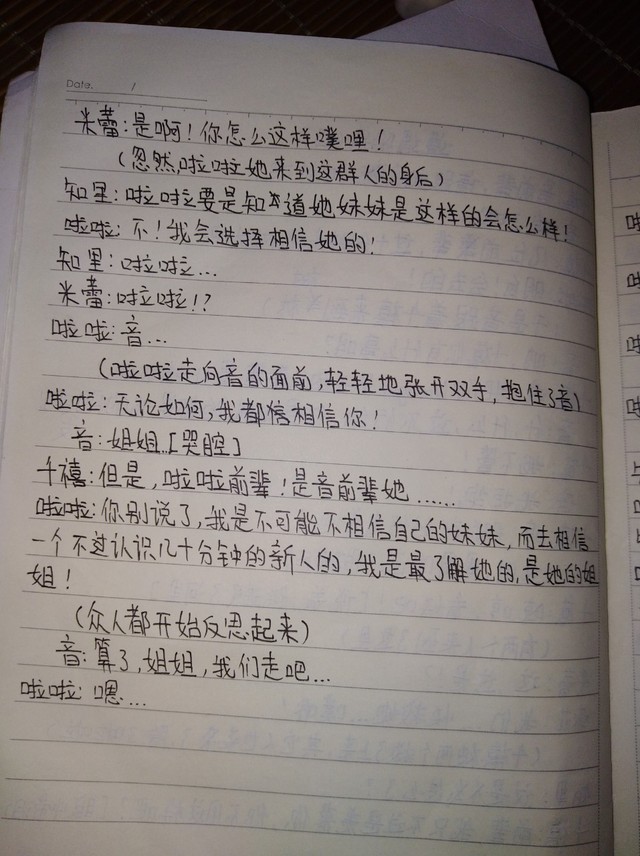 Date. /
米蕾:是啊!你怎么这样噗哩!
(忽然,啦啦她来到这群人的身后)
知里:啦啦要是知道她妹妹是这样的会怎么样!
啦啦:不!我会选择相信她的!
知里:啦啦...
米蕾:啦啦!?
啦啦:音...
(啦啦走向音的面前,轻轻地张开双手,抱住了音)
啦啦:无论如何,我都信相信你!
音:姐姐..[哭腔]
千禧:但是,啦啦前辈!是音前辈她......
啦啦:你别说了,我是不可能不相信自己的妹妹,而去相信
一个不过认识几十分钟的新人的,我是最了解她的,是她的姐
姐!
(众人都开始反思起来)
音:算了,姐姐,我们走吧...
啦啦:嗯...